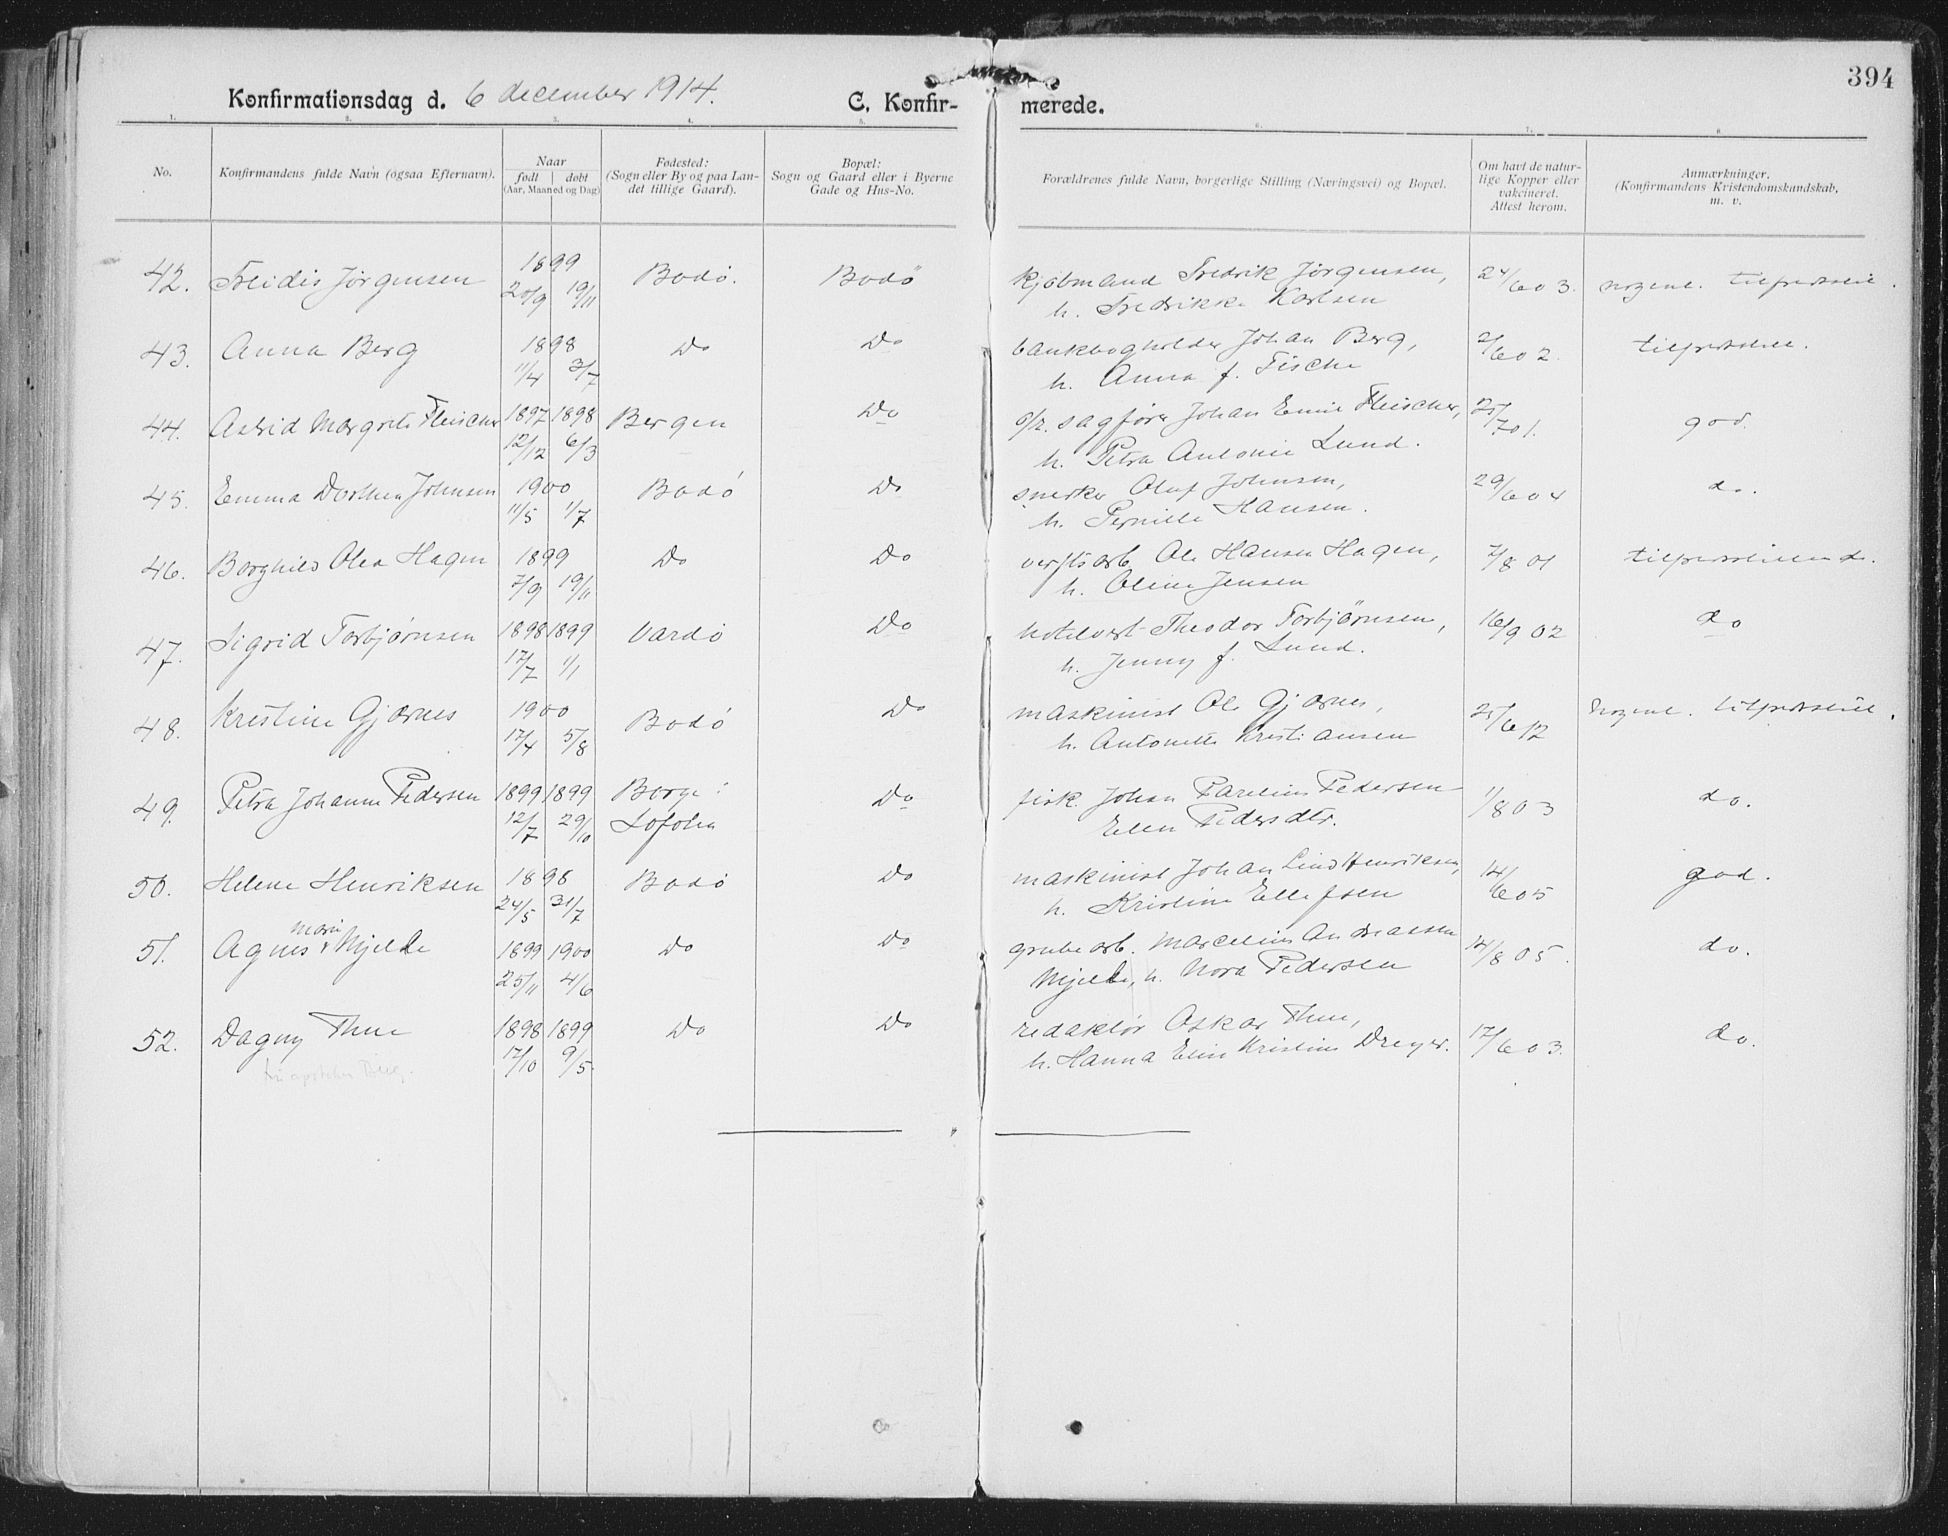 394
Konfirmationsdag d. 6 december 1914. C. Konfir- merede.
1. 2. 3. 4. 5. 6. 7. 8.
No.
Konfirmandens fulde Navn (ogsaa Efternavn).
Naar
født døbt
(Aar, Maaned og Dag)
Fødested:
(Sogn eller By og paa Lan-
det tillige Gaard).
Bopæl:
Sogn og Gaard eller i Byerne
Gade og Hus-No.
Forældrenes fulde Navn, borgerlige Stilling (Næringsvei) og Bopæl.
Om havt de natur-
lige Kopper eller
vakcineret.
Attest herom.
Anmærkninger.
(Konfirmandens Kristendomskundskab,
m. v.
42. Freidis Jørgensen 1899 Bodø. Bodø kjøbmand Fredrik Jørgensen, 24/6 03. nogenl. tilfredsstil.
20/9 19/11 h. Fredrikke Karlsen
43. Anna Berg 1898 Do Do bankbogholder Johan Berg, 2/6 02. tilfredsstil.
11/4 3/7 h. Anna f. Fischer
44. Astrid Margrete Fleischer 1897 1898 Bergen Do o/r. sagfører Johan Emil Fleischer, 25/7 01. god.
12/12 6/3 h. Petra Antonie Lund.
45. Emma Dorthea Johnsen 1900 Bodø Do snerker Oluf Johnsen, 29/6 04 do.
11/5 1/7 h. Pernille Hansen.
46. Borghild Olea Hagen 1899 Do Do verftsarb. Ole Hansen Hagen, 7/8 01 tilfredsstillende.
7/9 19/11 h. Oline Jensen
47. Sigrid Torbjørnsen 1898 1899 Vardø Do hotelvert Theodor Torbjørnsen, 16/9 02 do
17/7 1/1 h. Jenny f. Lund.
48. Kristine Gjærnes 1900 Bodø Do maskinist Ole Gjærnes, 25/6 12 Nogenl. tilfredsstil.
17/4 5/8 h. Antonette Kristiansen
49. Petra Johanne Pedersen 1899 1899 Borge i Do fisk. Johan Parelius Pedersen 1/8 03 do.
12/7 29/10 Lofoten Elen Pedersdtr.
50. Helene Henriksen 1898 Bodø Do maskinist Johan Lind Henriksen, 14/6 05 god.
24/5 31/7 h. Kristine Ellefsen
Marie
51. Agnes Mjelle 1899 1900 Do Do grubearb. Marcelius Andreassen 14/8 05. do.
25/11 4/6 Mjelle, h. Nora Pedersen
52. Dagny Thue 1898 1899 Do Do redaktør Oskar Thue, 17/6 03. do.
17/10 9/5 h. Hanna Elin Kristine Dreyer.